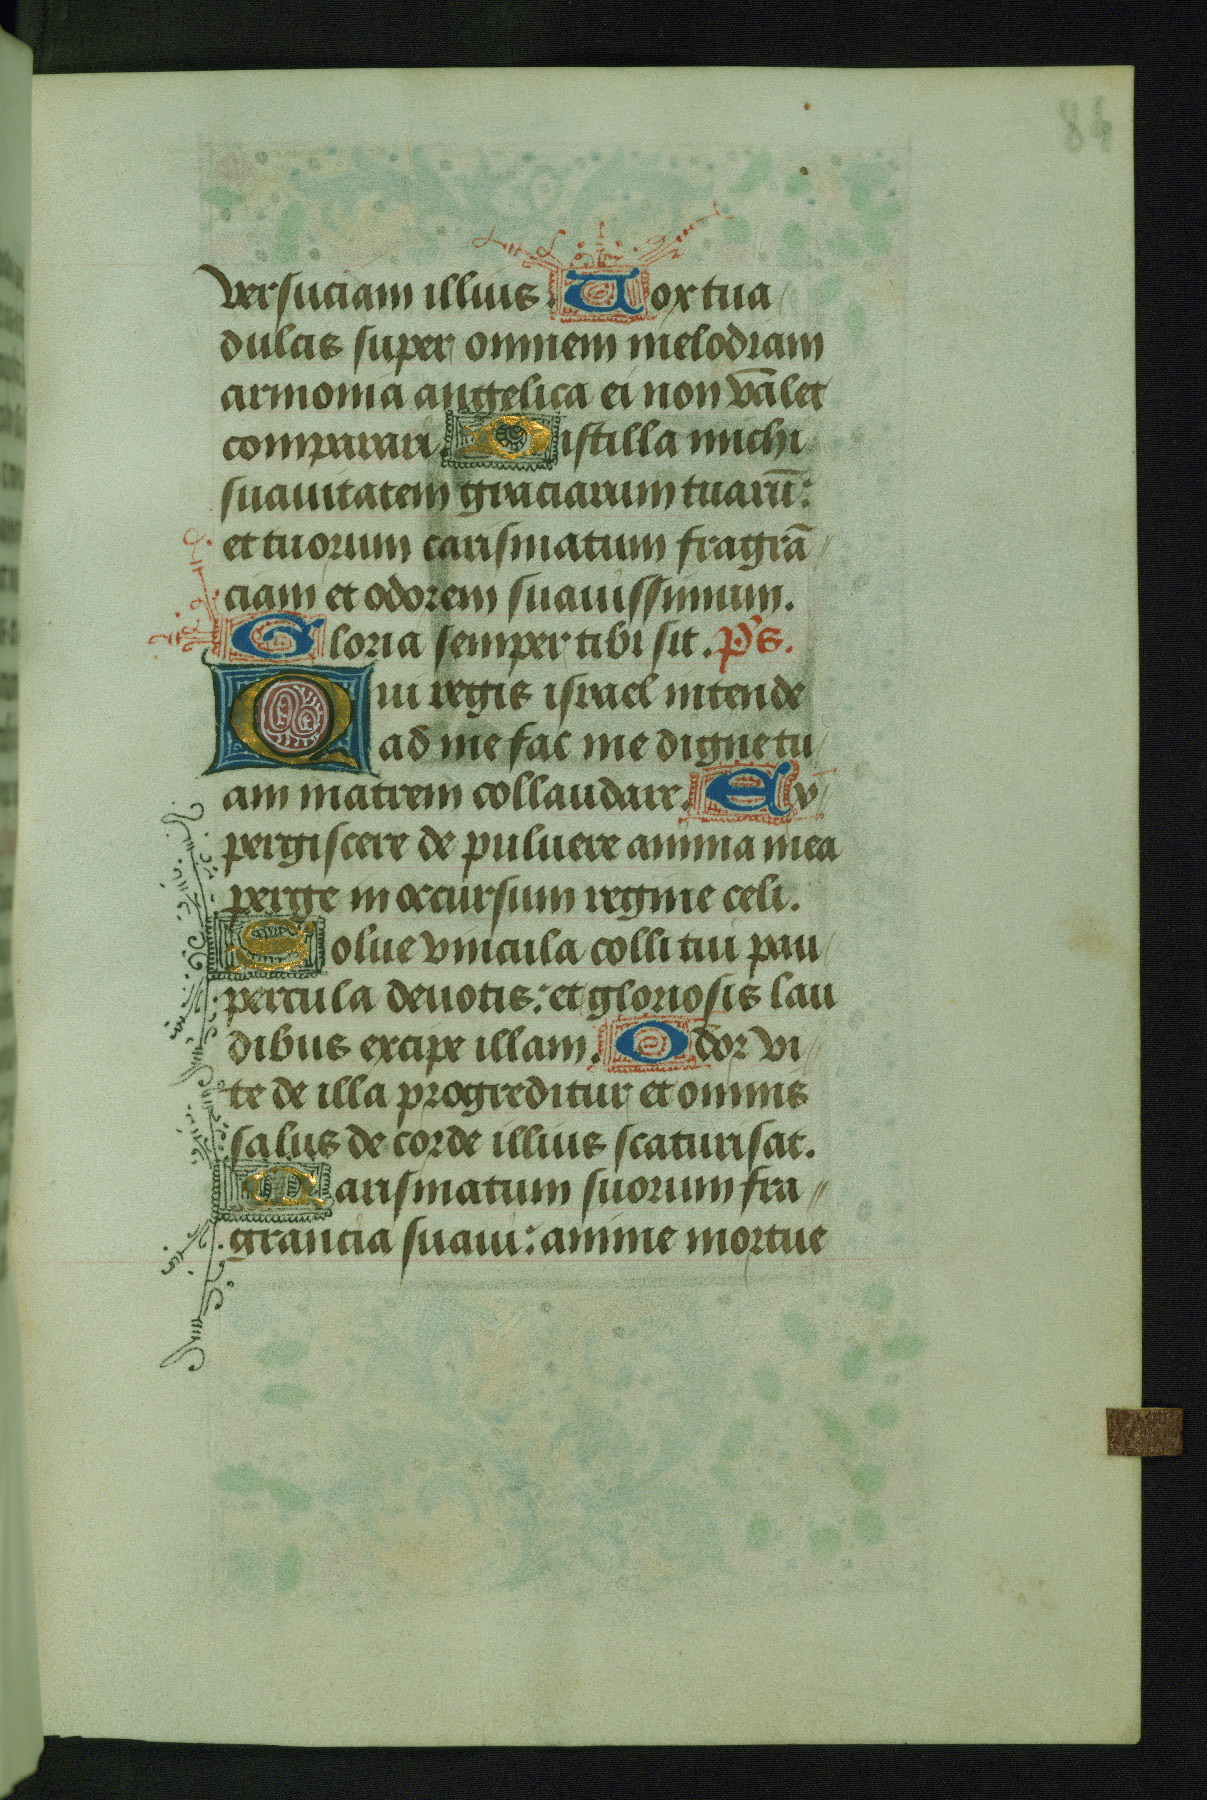 84
versuciam illius. Uox tua
dulcis super omnem melodiam
armonia angelica ei non valet
comparari. Distilla michi
suauitatem graciarum tuarū:
et tuorum carismatum fragrā
ciam et odorem suauissimum.
Gloria semper tibi sit. p̄s.
Qui regis israel intende
ad me fac me digne tu
am matrem collaudare. Ex
pergiscere de puluere anima mea
perge in occursum regine celi.
Solue vincula colli tui pau
percula deuotis: et gloriosis lau
dibus excipe illam. Odor vi
te de illa progreditur et omnis
salus de corde illius scaturisat.
Carismatum suorum fra
grancia suaui: anime mortue